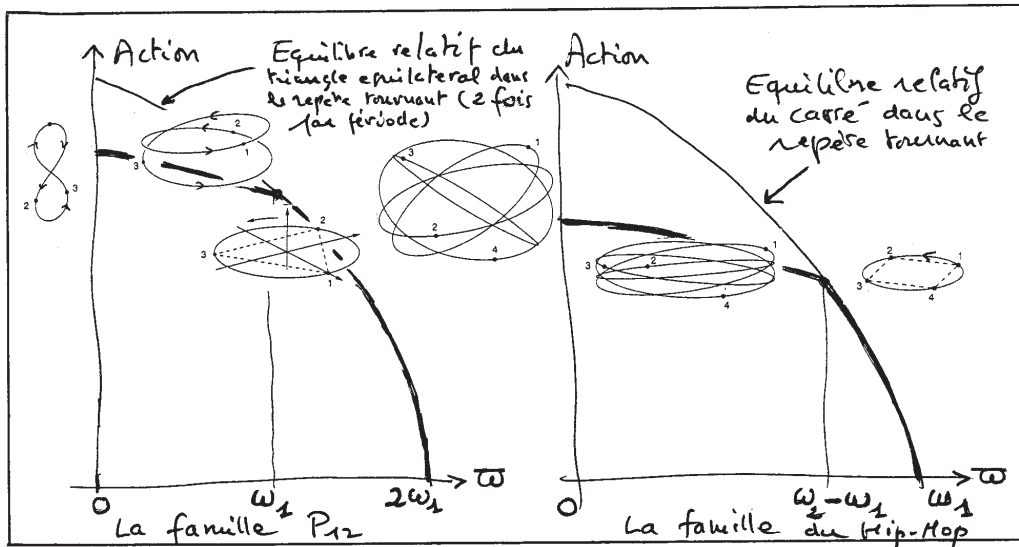 Action
Equilibre relatif du
triangle equilateral dans
le repère tournant (2 fois
par période)
2
1
3
3
2
2
3
1
0
ω₁
2ω₁
ϖ
La famille P₁₂
Action
Equilibre relatif
du carré dans le
repère tournant
3
1
2
4
1
3
2
4
2
1
3
4
0
ω₂-ω₁
ω₁
ϖ
La famille du Hip-Hop